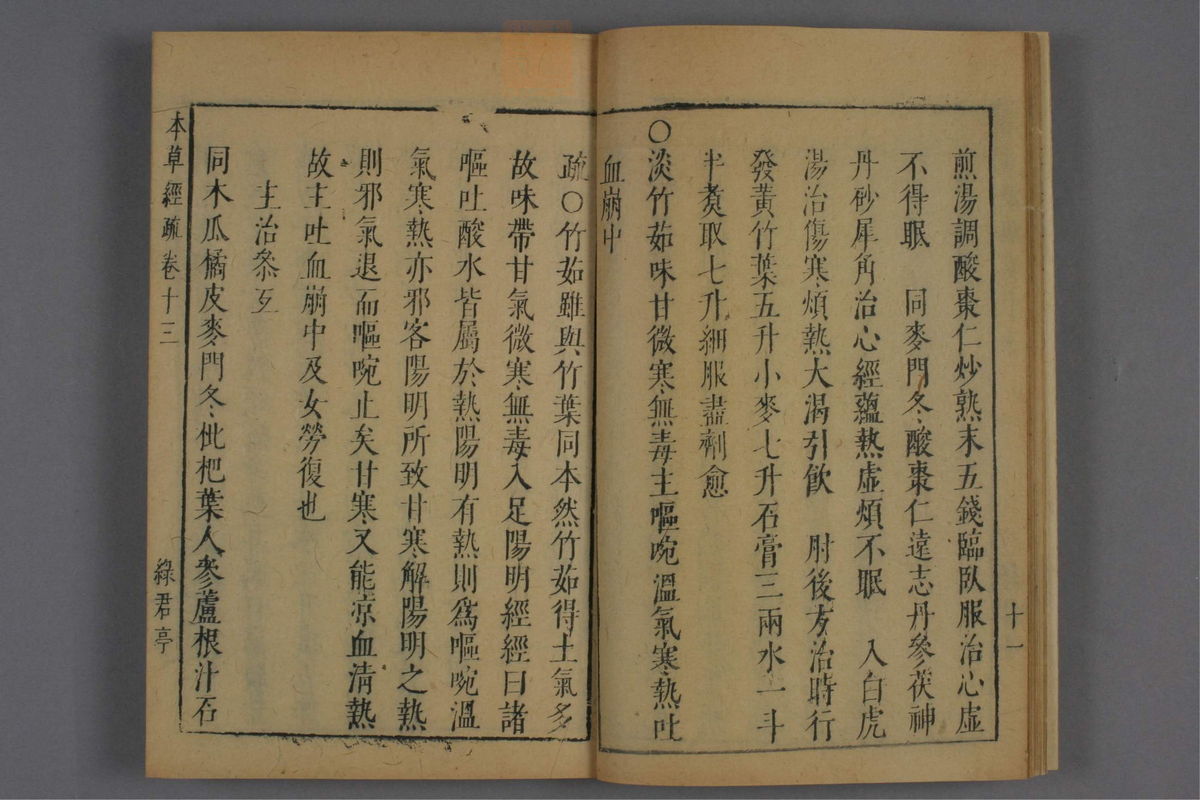 煎湯調酸棗仁炒熟末五錢臨臥服治心虛
不得眠　同麥門冬酸棗仁遠志丹參茯神
丹砂犀角治心經蘊熱虛煩不眠　入白虎
湯治傷寒煩熱大渴引飲　肘後方治時行
發黃竹葉五升小麥七升石膏三兩水一斗
半煑取七升細服盡劑愈
○淡竹茹味甘微寒無毒主嘔啘溫氣寒熱吐
血崩中
十一
疏○竹茹雖與竹葉同本然竹茹得土氣多
故味帶甘氣微寒無毒入足陽明經經曰諸
嘔吐酸水皆屬於熱陽明有熱則爲嘔啘溫
氣寒熱亦邪客陽明所致甘寒解陽明之熱
則邪氣退而嘔啘止矣甘寒又能凉血清熱
故主吐血崩中及女勞復也
主治叅互
同木瓜橘皮麥門冬枇杷葉人參蘆根汁石
本草經疏卷十三
綠君亭